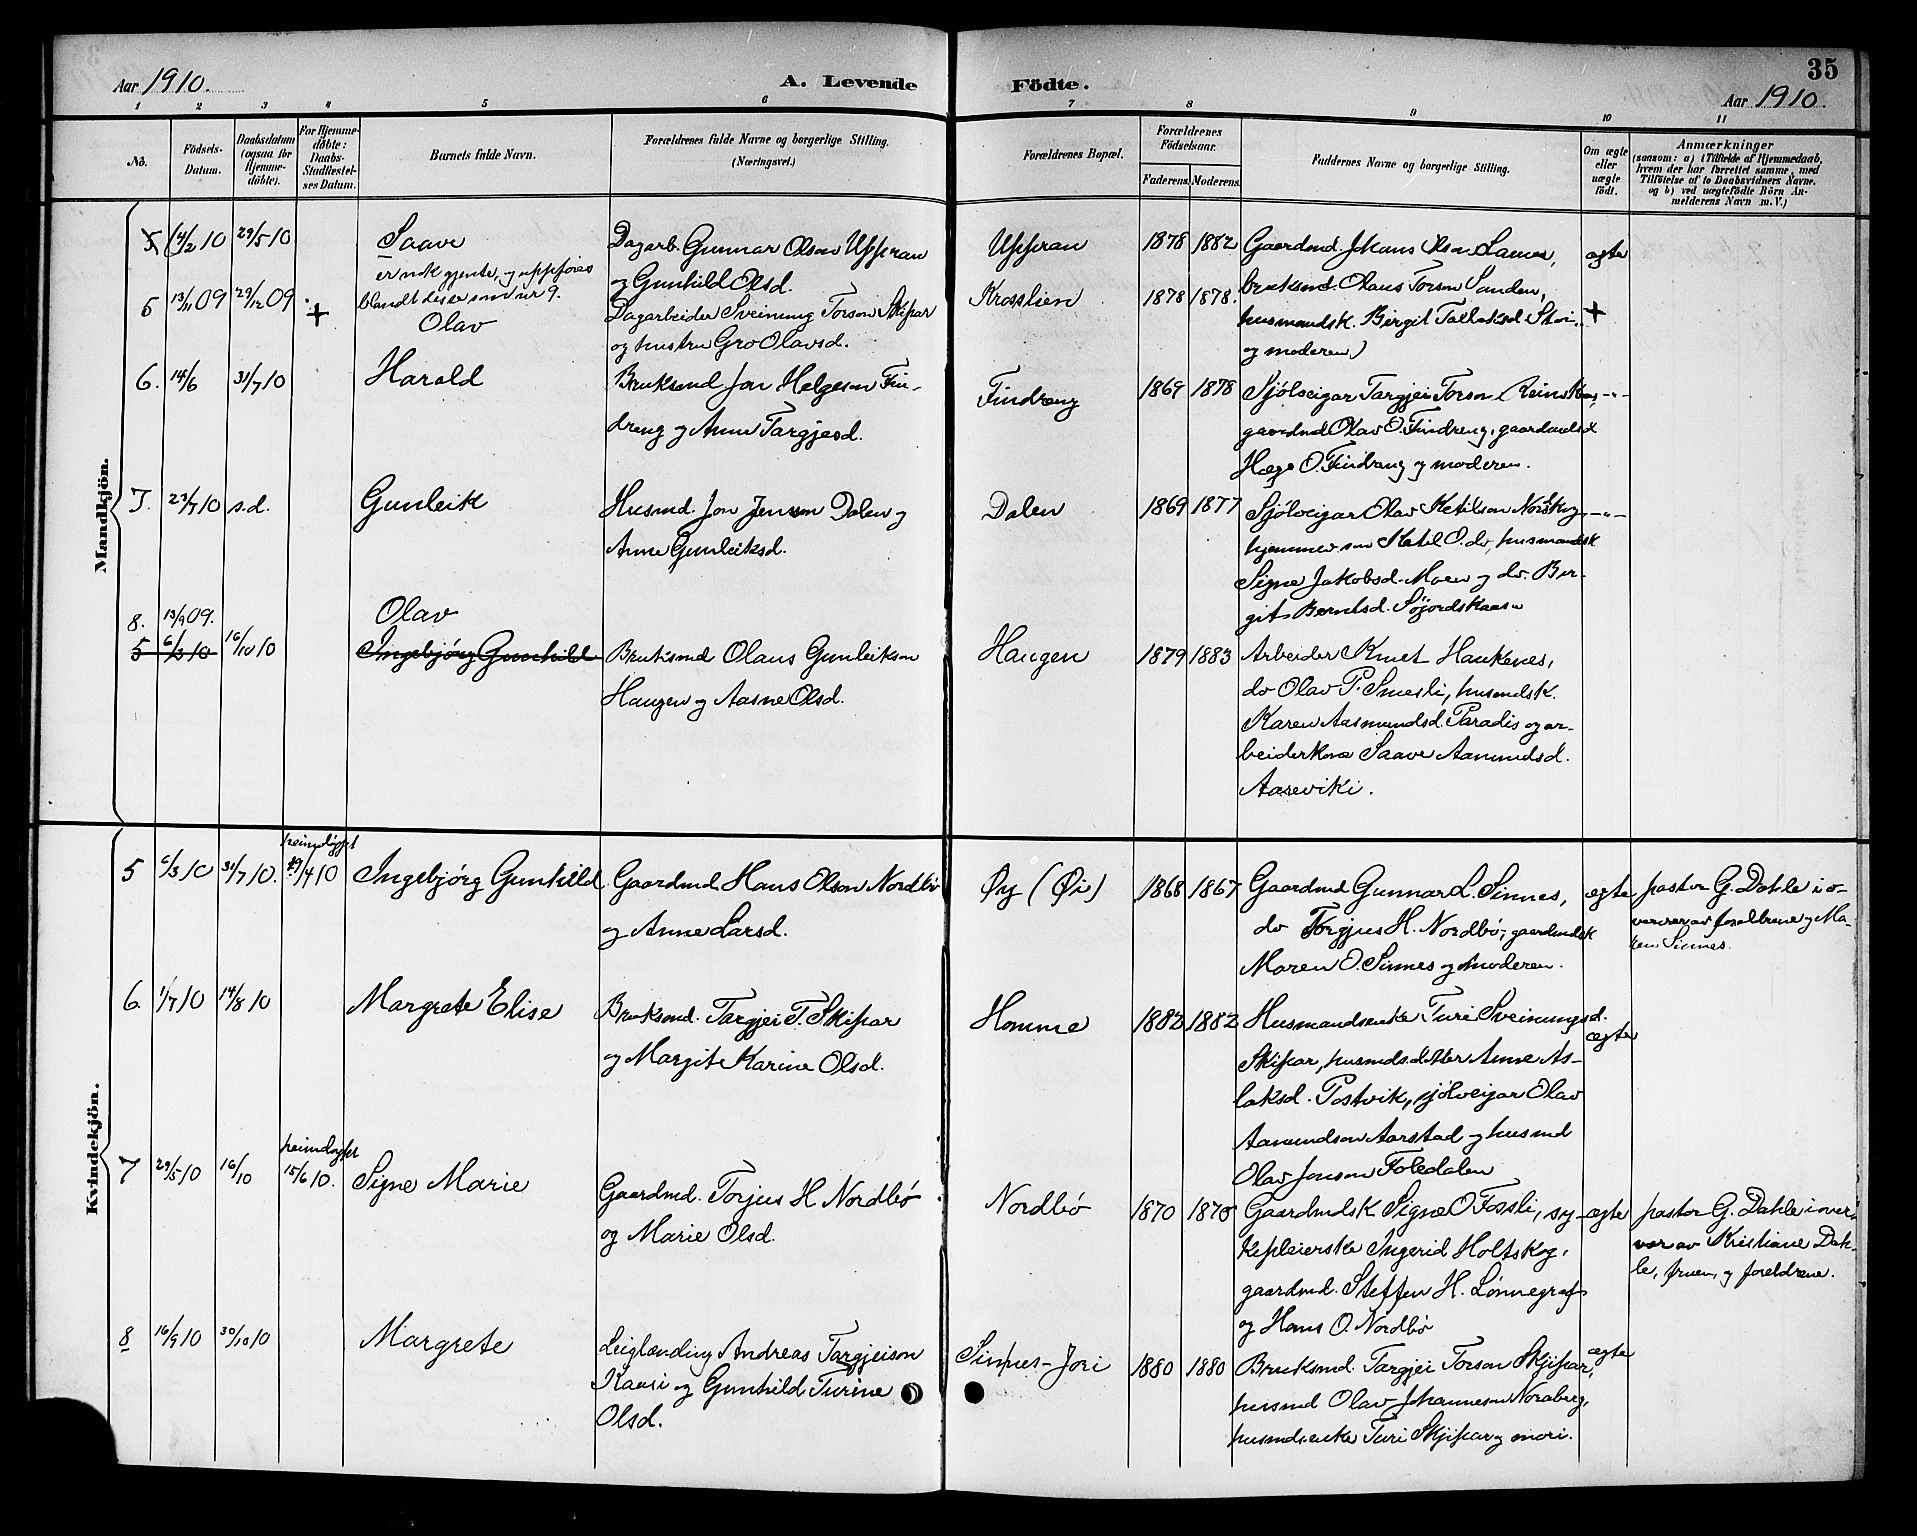 35
Aar 1910.
A. Levende
Födte.
Aar 1910.
1 2 3 4 5 6 7 8 9 10 11
No.
Födsels-
Datum.
Daabsdatum
(ogsaa for
Hjemme-
döbte).
For Hjemme-
döbte:
Daabs-
Stadfestel-
ses Datum.
Barnets fulde Navn.
Forældrenes fulde Navne og borgerlige Stilling.
(Næringsvei.)
Forældrenes Bopæl.
Forældrenes
Födselsaar.
Faderens. Moderens.
Faddernes Navne og borgerlig Stilling.
Om ægte
eller
uægte
födt.
Anmærkninger
(saasom: a) i Tilfælde af Hjemmedaab,
hvem der har forrettet samme, med
Tilföielse af to Daabsvidners Navne,
og b) ved uægtefödte Börn An-
melderens Navn m. V.)
Mandkjön.
5 14/2 10 29/5 10
Saave
er nok gjente, og uppføres
blandt disse som nr 9.
Dagarb. Gunnar Olson Uppran
og Gunhild Olsd.
Uppran
1878 1882
Gaardmd.
ægte
5 13/11 09 29/12 09 +
Olav
Dagarbeider Sveinung Torson Skipar
og hustru Gro Olavsd.
Krosslien
1878 1878.
bruksmd. Olaus Torson Sanden,
husmandsk. Birgit
og moderen)
+
6. 14/6 31/7 10
Harald
Bruksmd Jon Helgeson Fin-
dreng og Anne Targjesd.
Findreng
1869 1878
Sjölveigar Targjei Torson
gaardmd Olav O. Findreng, gaardmdsd
Hæge O. Findreng og moderen.
-"-
7. 23/7 10 s.d.
Gunleik
Husmd. Jon Jenson Dalen og
Anne Gunleiksd.
Dalen
1869 1877
Sjölveigar Olav Ketilson Norskog
hjemmev. søn Ketel O. do, husmandsk
Signe Jakobsd. Moen og do. Bir-
git Berntsd.
-"-
8. 13/9 09.
Olav
5 6/3 10 16/10 10
Ingebjørg Gunhild
Bruksmd Olaus Gunleikson
Haugen og Aasne Olsd.
Haugen
1879 1883
Arbeider Knut Haukenes,
do Olav P. Smesli, husmdsk.
Karen Aasmundsd. Paradis og ar-
beiderkona Saave Aanundsd.
Aaseviki.
Kvindekjön.
5 6/3 10 31/7 10.
heimdøypt
19/4 10
Ingebjørg Gunhild
Gaardmd. Hans Olson Nordbø
og Anne Larsd.
Øy (Øi)
1868 1867
Gaardmd Gunnar L. Sinnes,
do Torgjus H. Nordbø, gaardmdsk
Maren O. Sinnes og moderen.
ægte
pastor G. Dahle i o-
verver av foreldrene og Ma-
ren Sinnes.
6. 1/7 10 14/8 10
Margrete Elise
Bruksmd. Targjei T. Skipar
og Margit Karine Olsd.
Homme
1882 1882
Husmandsenke Turi Sveinungsd.
Skipar, husmdsdatter Anne As-
laksd. Postvik, sjölveigar Olav
Aanundson Aarstad og husmd
Olav Jonson Foledalen
ægte
7 29/5 10 16/10
heimdøypt
15/6 10.
Signe Marie
Gaardmd. Torjus H Nordbø
og Marie Olsd.
Nordbø
1870 1878
Gaardmdsk Signe O Fossli, sy-
kepleierske Ingerid Holtskog,
gaardmd. Steffen H. Lønnegraf
og Hans O. Nordbø
ægte
pastor G. Dahle i over-
ver av Kristiane Dah-
le, fruen, og foreldrene.
8 16/9 10 30/10 10
Margrete
Leiglænding Andreas Targjeison
Kaasi og Gunhild Turine
Olsd.
Sinnes-Jori
1880 1880
Bruksmd. Targjei Torson Skjipar,
husmd Olav Johannesen Noraberg,
husmdsenke Turi Skjipar og mori.
ægte